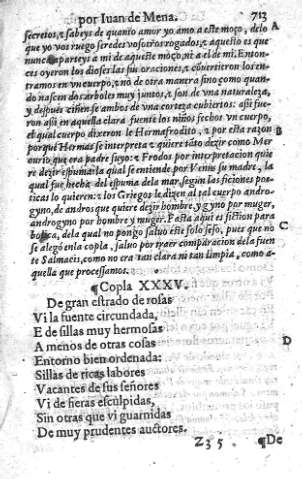 por Iuan de Mena. 713
secretos, z sabeys de quanto amor yo amo a este moço, delo A
que yo vos ruego seredes vosotros rogados, z aquesto es que
nunca aparteys a mi de aqueste moço, ni a el de mi. Enton-
ces oyeron los dioses las sus oraciones, z conuirtieron los en-
trambos en vn cuerpo, z no de otra manera sino como quan-
do nascen dos arboles muy juntos, z son de vna naturaleza,
y despues ciñense ambos de vna corteza cubiertos: assi fue-
ron assi en aquella clara fuente los niños fechos vn cuerpo,
el qual cuerpo dixeron le Hermafrodito, z por esta razon B
porque Hermas se interpreta z quiere tãto dezir como Mer
curio que era padre suyo: z Frodos por interpretacion quie
re dezir espuma: la qual se entiende por Venus su madre, la
qual fue hecha del espuma dela mar, segun las ficiones poe-
ticas lo quieren: z los Griegos le dizen al tal cuerpo andro-
gyno, de andros que quiere dezir hombre, y gyno por muger,
androgyno por hombre y muger. Fasta aqui es fiction para
la qual no pongo saluo este solo seso, pues que no C
se alegò enla copla, saluo por traer comparacion dela fuen
te Salmacis, como no era tan clara ni tan limpia, como a-
quella que processamos.
¶Copla XXXV.
De gran estrado de rosas
Vi la fuente circundada,
E de sillas muy hermosas
A menos de otras cosas D
Entorno bien ordenada:
Sillas de ricas labores
Vacantes de sus señores
Vi de fieras esculpidas,
Sin otras que vi guarnidas
De muy prudentes auctores.
Z 3 5. ¶De